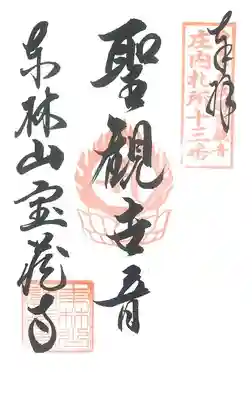 奉拝
庄内札所十三番
聖観世音
東林山宝蔵寺